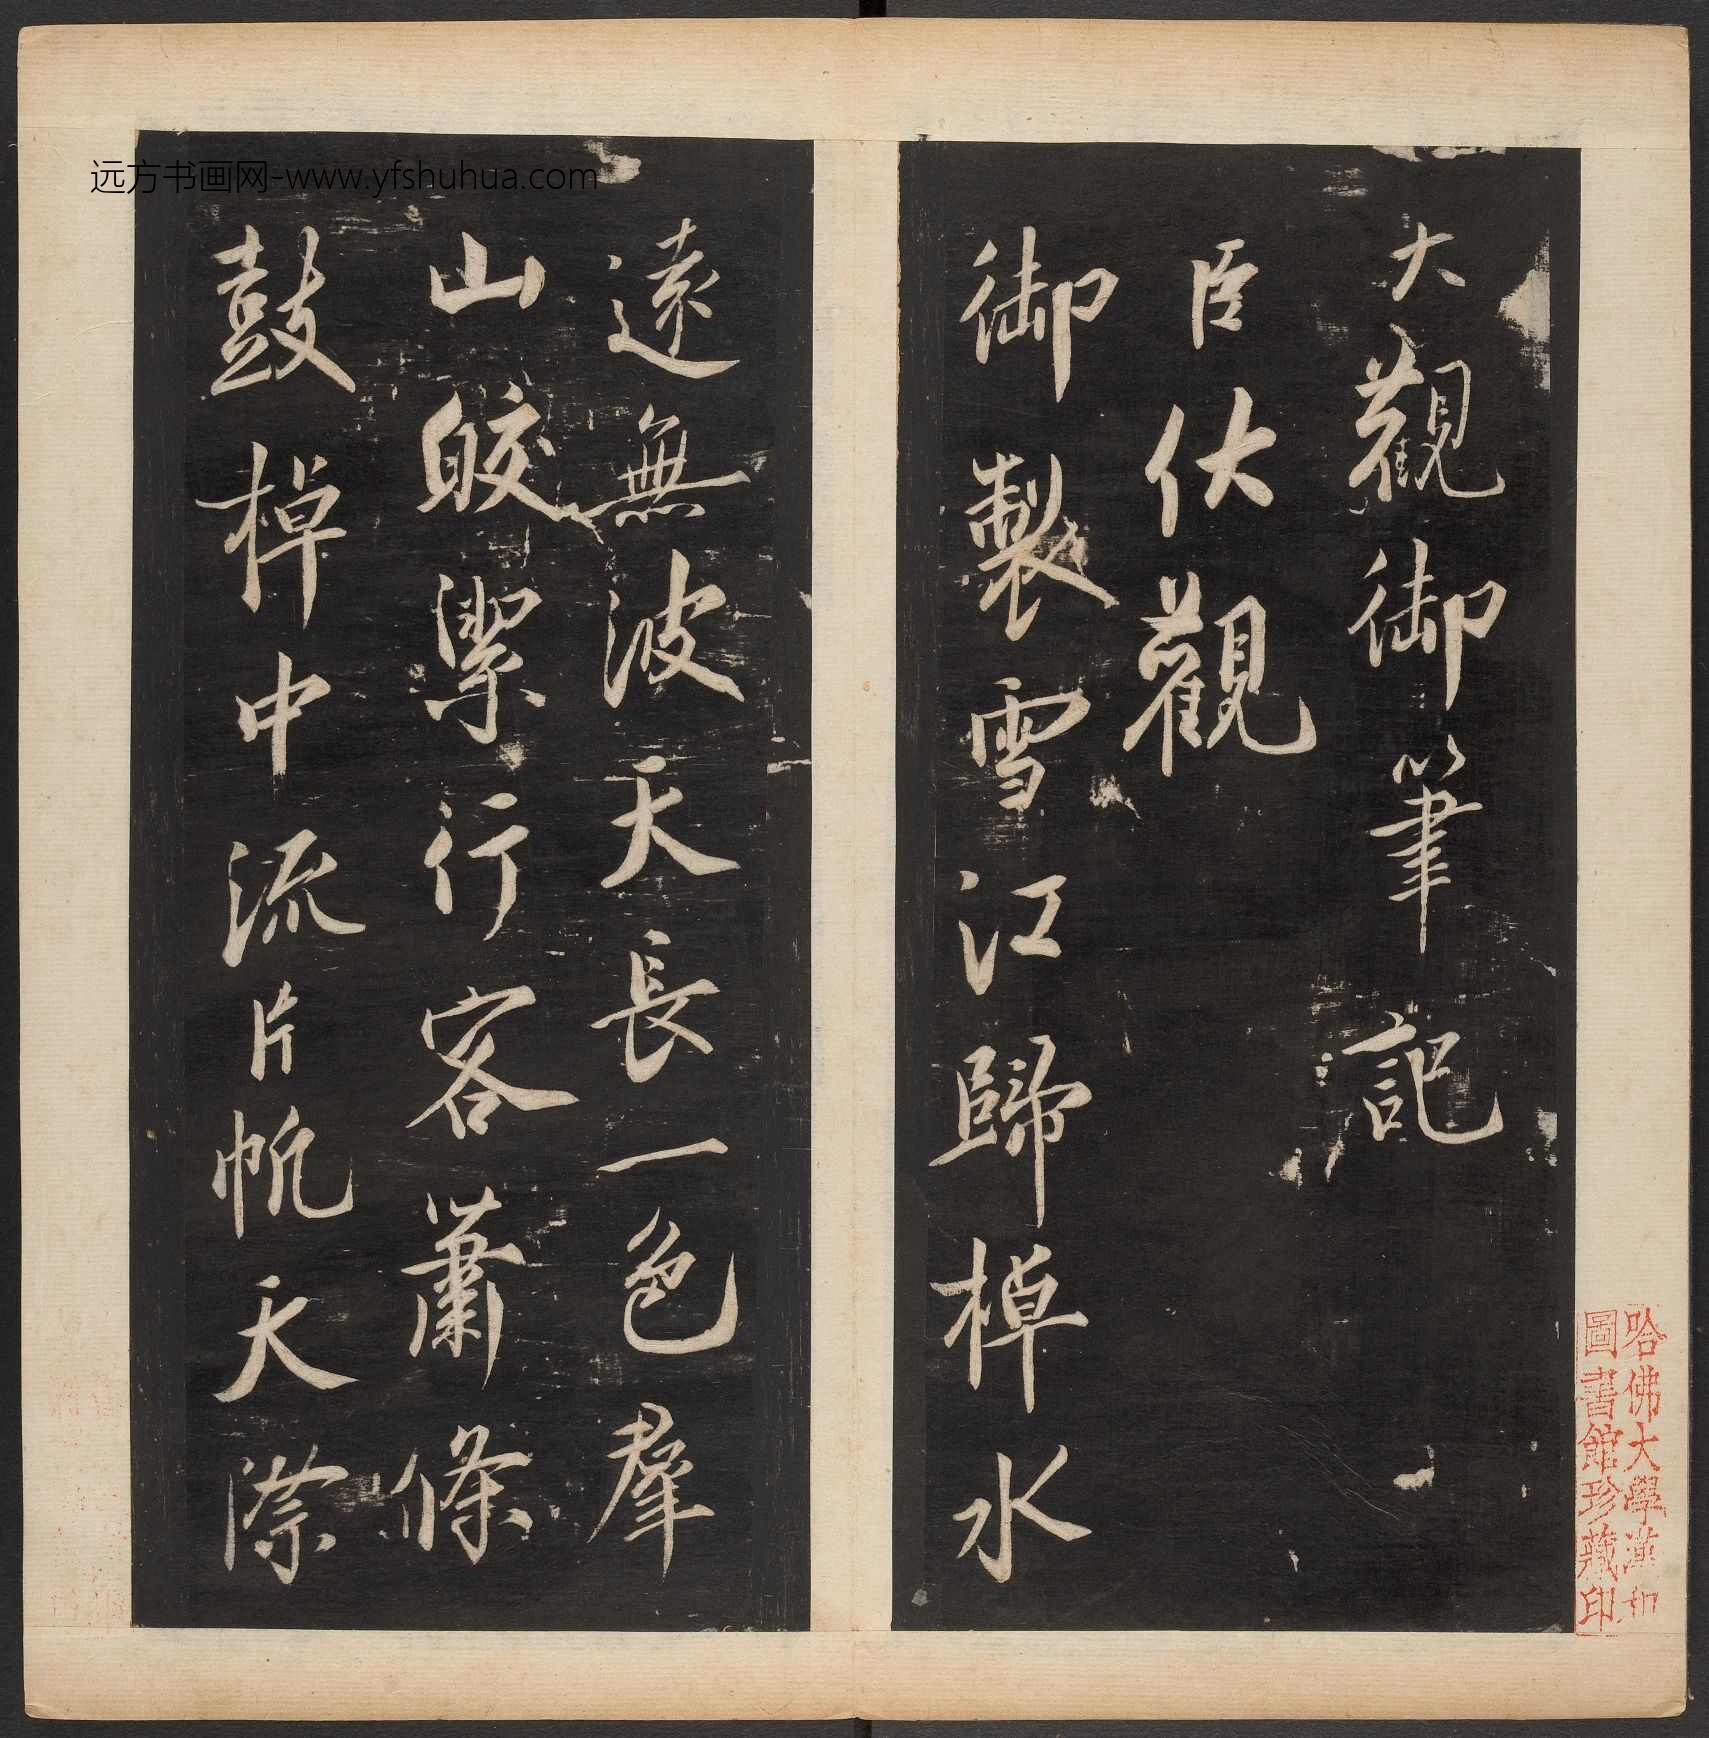 大觀御筆記
臣伏觀
御製雪江歸棹水
遠無波天長一色羣
山皎潔行客蕭條
鼓棹中流片帆天際
远方书画网-www.yfshuhua.com
哈佛大學漢和
圖書館珍藏印